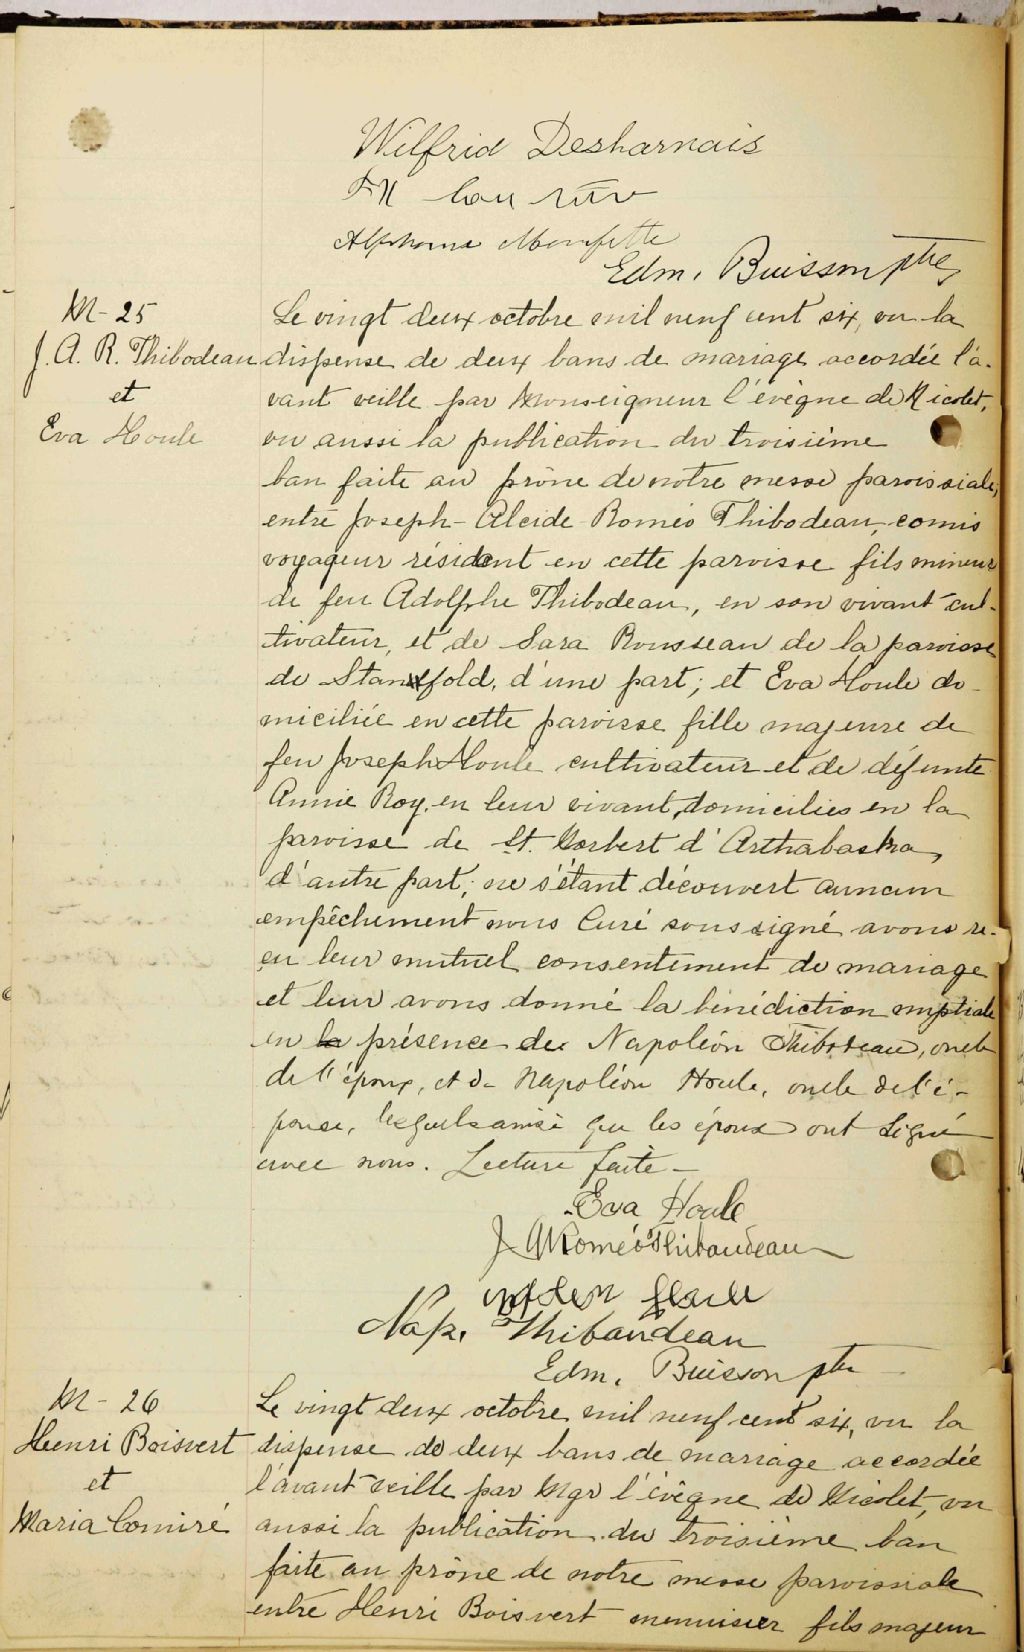 Wilfrid Desharnais
Alphonse Monfette
Edm. Buisson ptre
M - 25
J. A. R. Thibodeau
et
Eva Houle
Le vingt deux octobre mil neuf cent six, vu la
dispense de deux bans de mariage accordée l'a-
vant veille par Monseigneur l'évêque de Nicolet,
vu aussi la publication du troisième
ban faite au prône de notre messe paroissiale,
entre Joseph-Alcide Roméo Thibodeau, comis
voyageur résident en cette paroisse fils mineur
de feu Adolphe Thibodeau, en son vivant cul-
tivateur, et de Sara Rousseau de la paroisse
de Stanfold, d'une part; et Eva Houle do-
miciliée en cette paroisse fille majeure de
feu Joseph Houle cultivateur et de défunte
Annie Roy, en leur vivant, domiciliés en la
paroisse de St. Norbert d'Arthabaska,
d'autre part; ne s'étant découvert aucun
empêchement nous Curé soussigné avons re-
çu leur mutuel consentement de mariage
et leur avons donné la bénédiction nuptiale
en la présence de Napoléon Thibodeau, oncle
de l'époux, et de Napoléon Houle, oncle de l'é-
pouse, lesquels ainsi que les époux ont signé
avec nous. Lecture faite -
Eva Houle
J A Roméo Thibaudeau
Houle
Nap. Thibaudeau
Edm. Buisson ptre
M - 26
Henri Boisvert
et
Maria Comiré
Le vingt deux octobre mil neuf cent six, vu la
dispense de deux bans de mariage accordée
l'avant veille par Mgr l'évêque de Nicolet, vu
aussi la publication du troisième ban
faite au prône de notre messe paroissiale
entre Henri Boisvert menuisier fils majeur